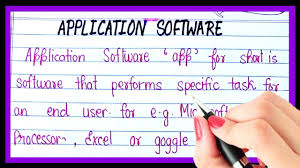 APPLICATION SOFTWARE
Application Software 'app' for short is
software that performs specific task for
an end user. for e.g. Microsoft
Processor, Excel or goggle